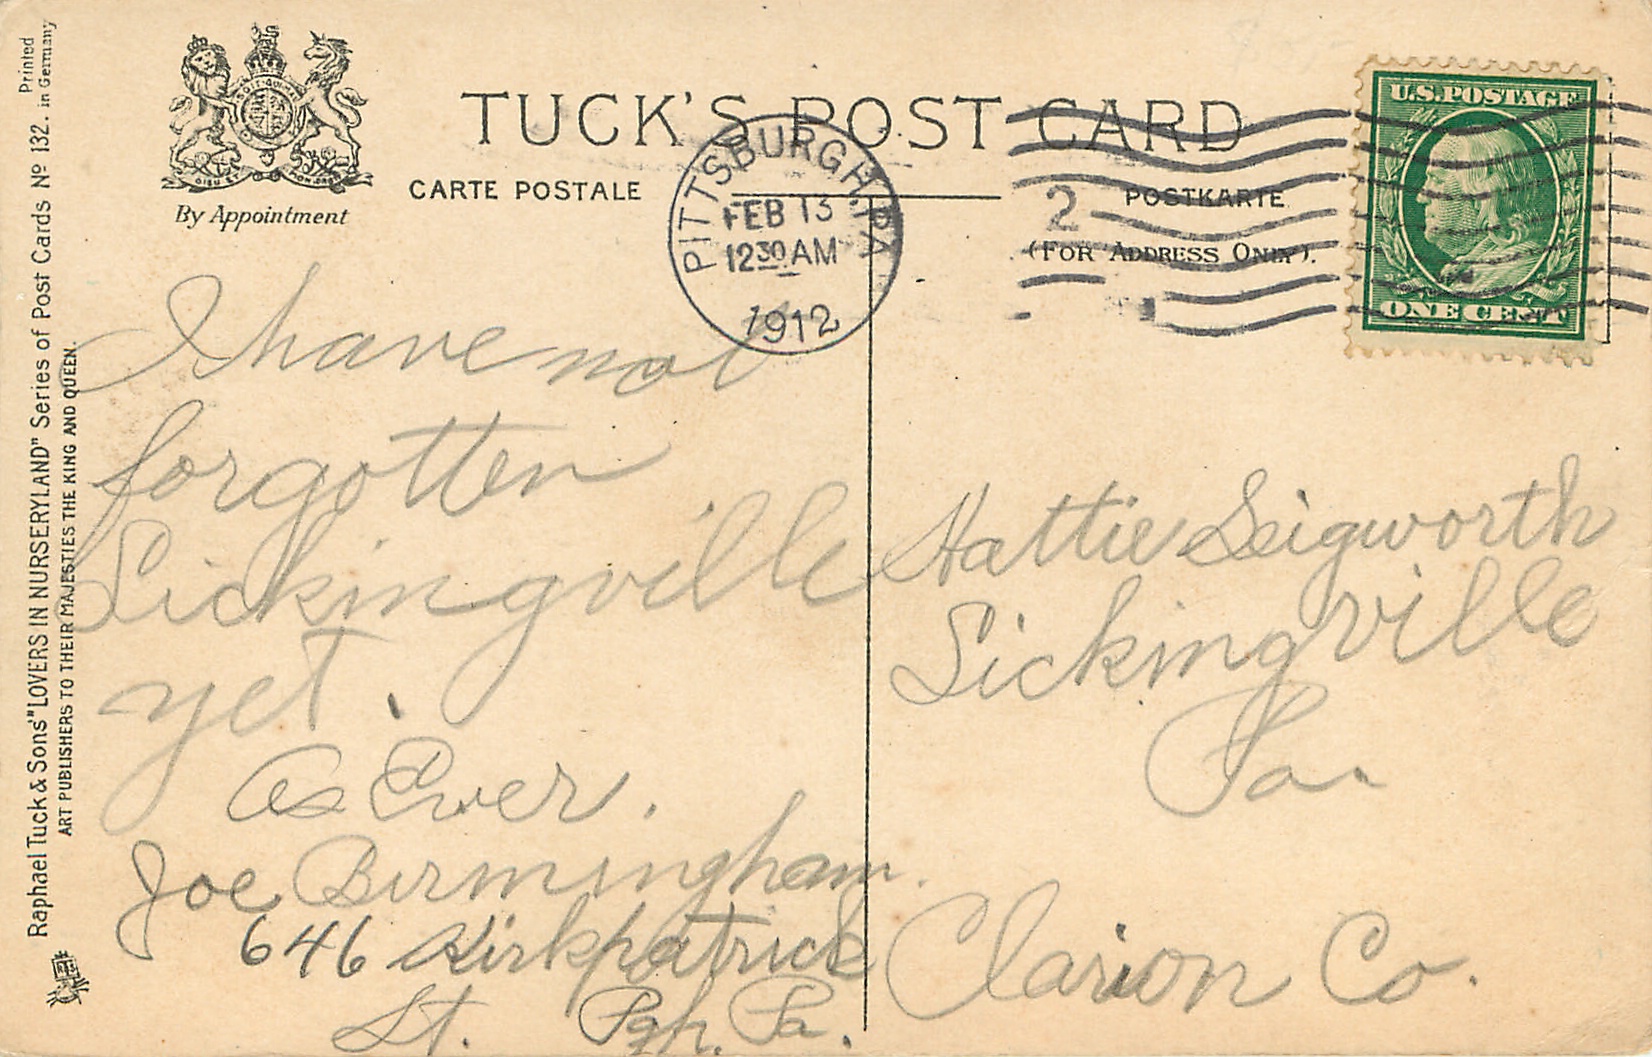 Printed
in Germany
Raphael Tuck & Sons' "LOVERS IN NURSERYLAND" Series of Post Cards Nº 132.
ART PUBLISHERS TO THEIR MAJESTIES THE KING AND QUEEN.
DIEU ET MON DROIT
By Appointment
TUCK'S POST CARD
CARTE POSTALE
POSTKARTE
(FOR ADDRESS ONLY).
PITTSBURGH, PA
FEB 13
12 30 AM
1912
2
U.S. POSTAGE
ONE CENT
I have not
forgotten
Sickingville
yet.
As Ever.
Joe Birmingham.
646 Kirkpatrick
St. Pgh. Pa.
Hattie Seigworth
Sickingville
Pa.
Clarion Co.